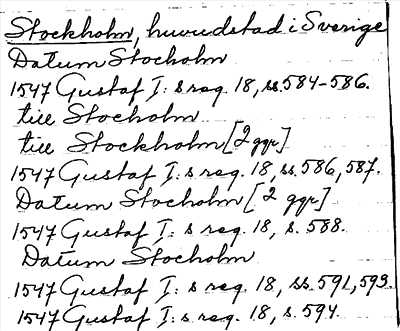 Stockholm, huvudstad i Sverige
Datum Stocholm
1547 Gustaf I: s reg. 18, ss. 584-586.
till Stocholm
till Stockholm [2 ggr]
1547 Gustaf I: s reg. 18, ss. 586, 587.
Datum Stocholm [2 ggr]
1547 Gustaf I: s reg. 18, s. 588.
Datum Stocholm
1547 Gustaf I: s reg. 18, ss. 591, 593.
1547 Gustaf I: s reg. 18, s. 594.